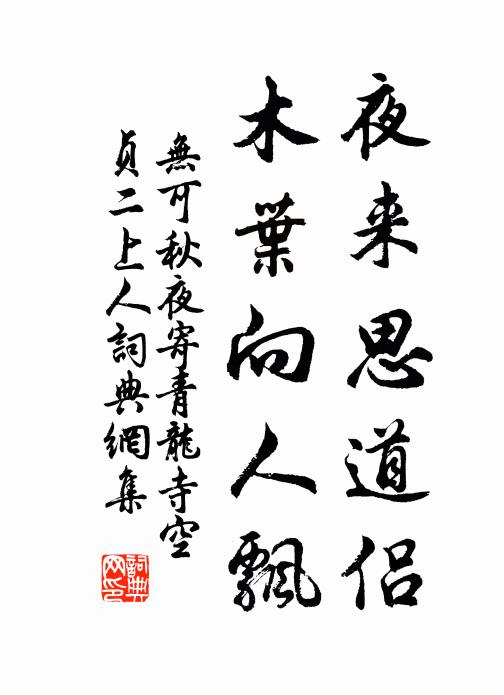 夜来思道侣
木葉向人飄
無可秋夜寄青龍寺空
貞二上人詞典網集
詞典
网印